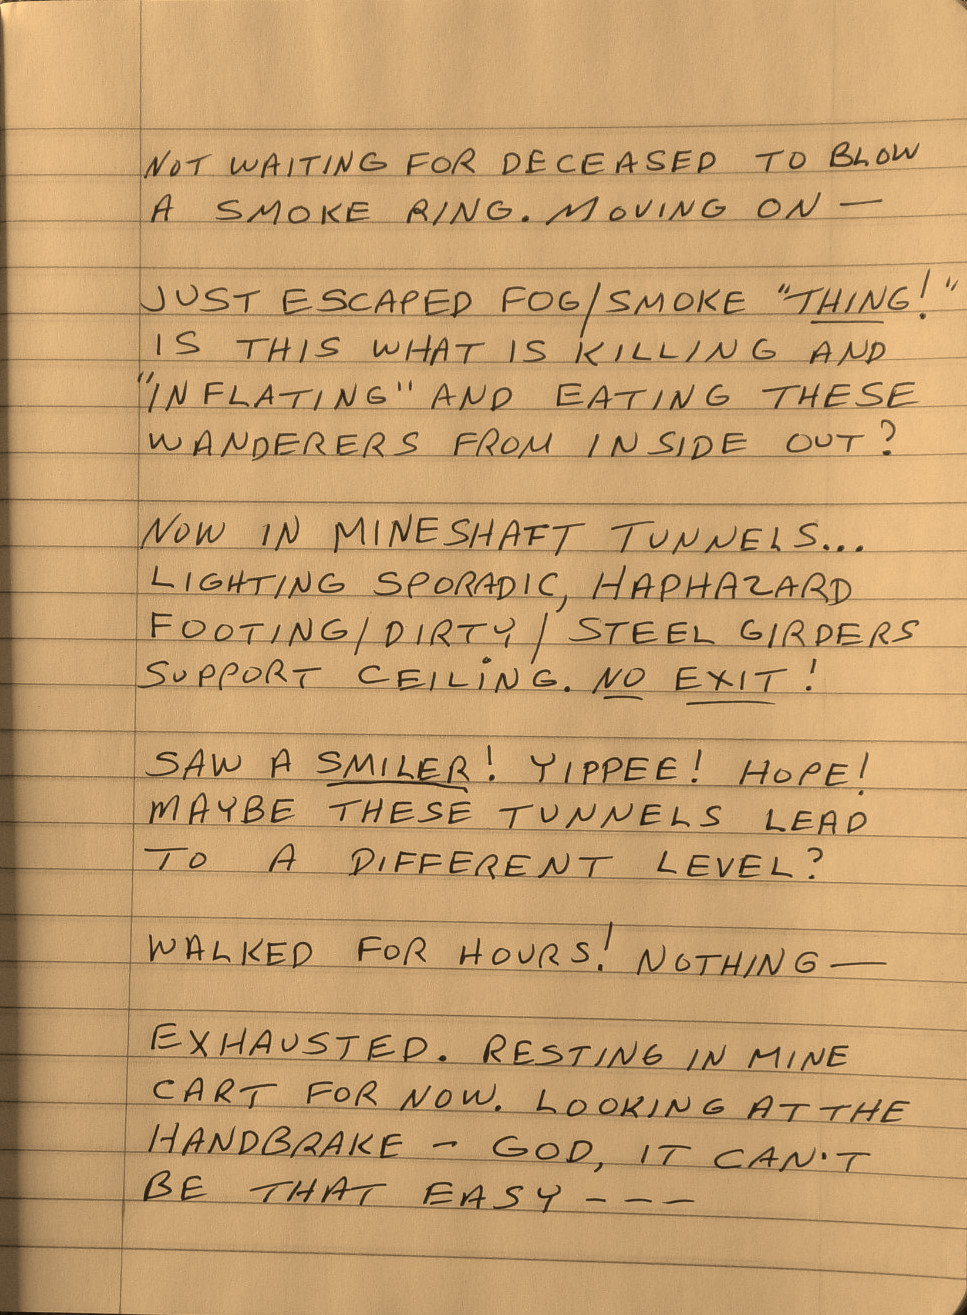 NOT WAITING FOR DECEASED TO BLOW
A SMOKE RING. MOVING ON —
JUST ESCAPED FOG/SMOKE "THING!"
IS THIS WHAT IS KILLING AND
"INFLATING" AND EATING THESE
WANDERERS FROM INSIDE OUT?
NOW IN MINESHAFT TUNNELS...
LIGHTING SPORADIC, HAPHAZARD
FOOTING/DIRTY/STEEL GIRDERS
SUPPORT CEILING. NO EXIT!
SAW A SMILER! YIPPEE! HOPE!
MAYBE THESE TUNNELS LEAD
TO A DIFFERENT LEVEL?
WALKED FOR HOURS! NOTHING —
EXHAUSTED. RESTING IN MINE
CART FOR NOW. LOOKING AT THE
HANDBRAKE - GOD, IT CAN'T
BE THAT EASY - - -